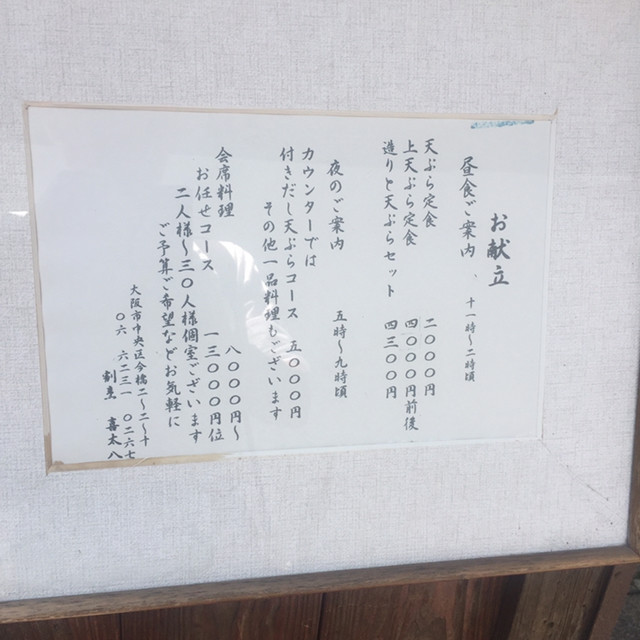 お献立
昼食ご案内、十一時〜二時頃
天ぷら定食 二〇〇〇円
上天ぷら定食 四〇〇〇円前後
造りと天ぷらセット 四三〇〇円
夜のご案内 五時〜九時頃
カウンターでは
付きだし天ぷらコース 五〇〇〇円
その他一品料理もございます
会席料理 八〇〇〇円〜
お任せコース 一三〇〇〇円位
二人様〜三〇人様個室ございます
ご予算ご希望などお気軽に
大阪市中央区今橋二ー二ー十
〇六 六二三一 〇二六七
割烹 喜太八